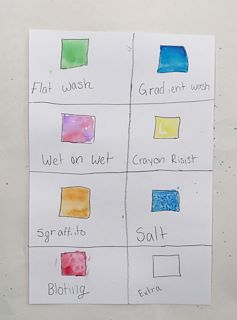 Flat wash
Gradient wash
Wet on Wet
Crayon Risist
Sgraffito
Salt
Bloting
Extra